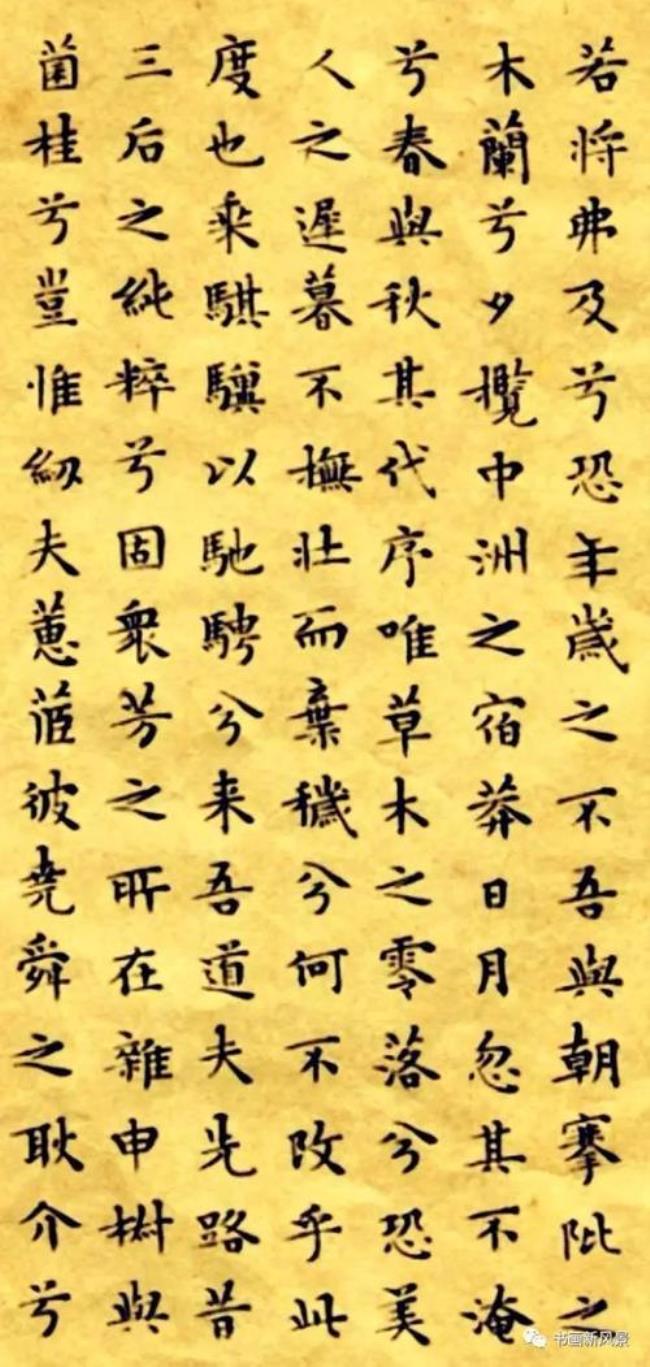 若将弗及兮恐年歲之不吾與朝搴阰之
木蘭兮夕攬中洲之宿莽日月忽其不淹
兮春與秋其代序唯草木之零落兮恐美
人之遲暮不撫壮而棄穢兮何不改乎此
度也乘騏驥以馳騁兮来吾道夫先路昔
三后之純粹兮固衆芳之所在雜申椒與
菌桂兮豈惟紉夫蕙茝彼堯舜之耿介兮
书画新风景